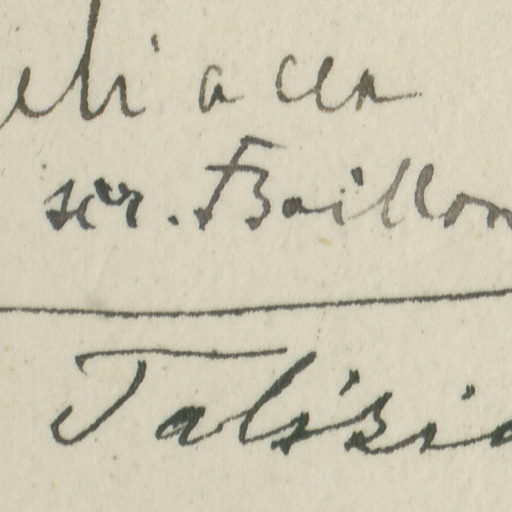 eliacea
scr. Baillon
Talisia